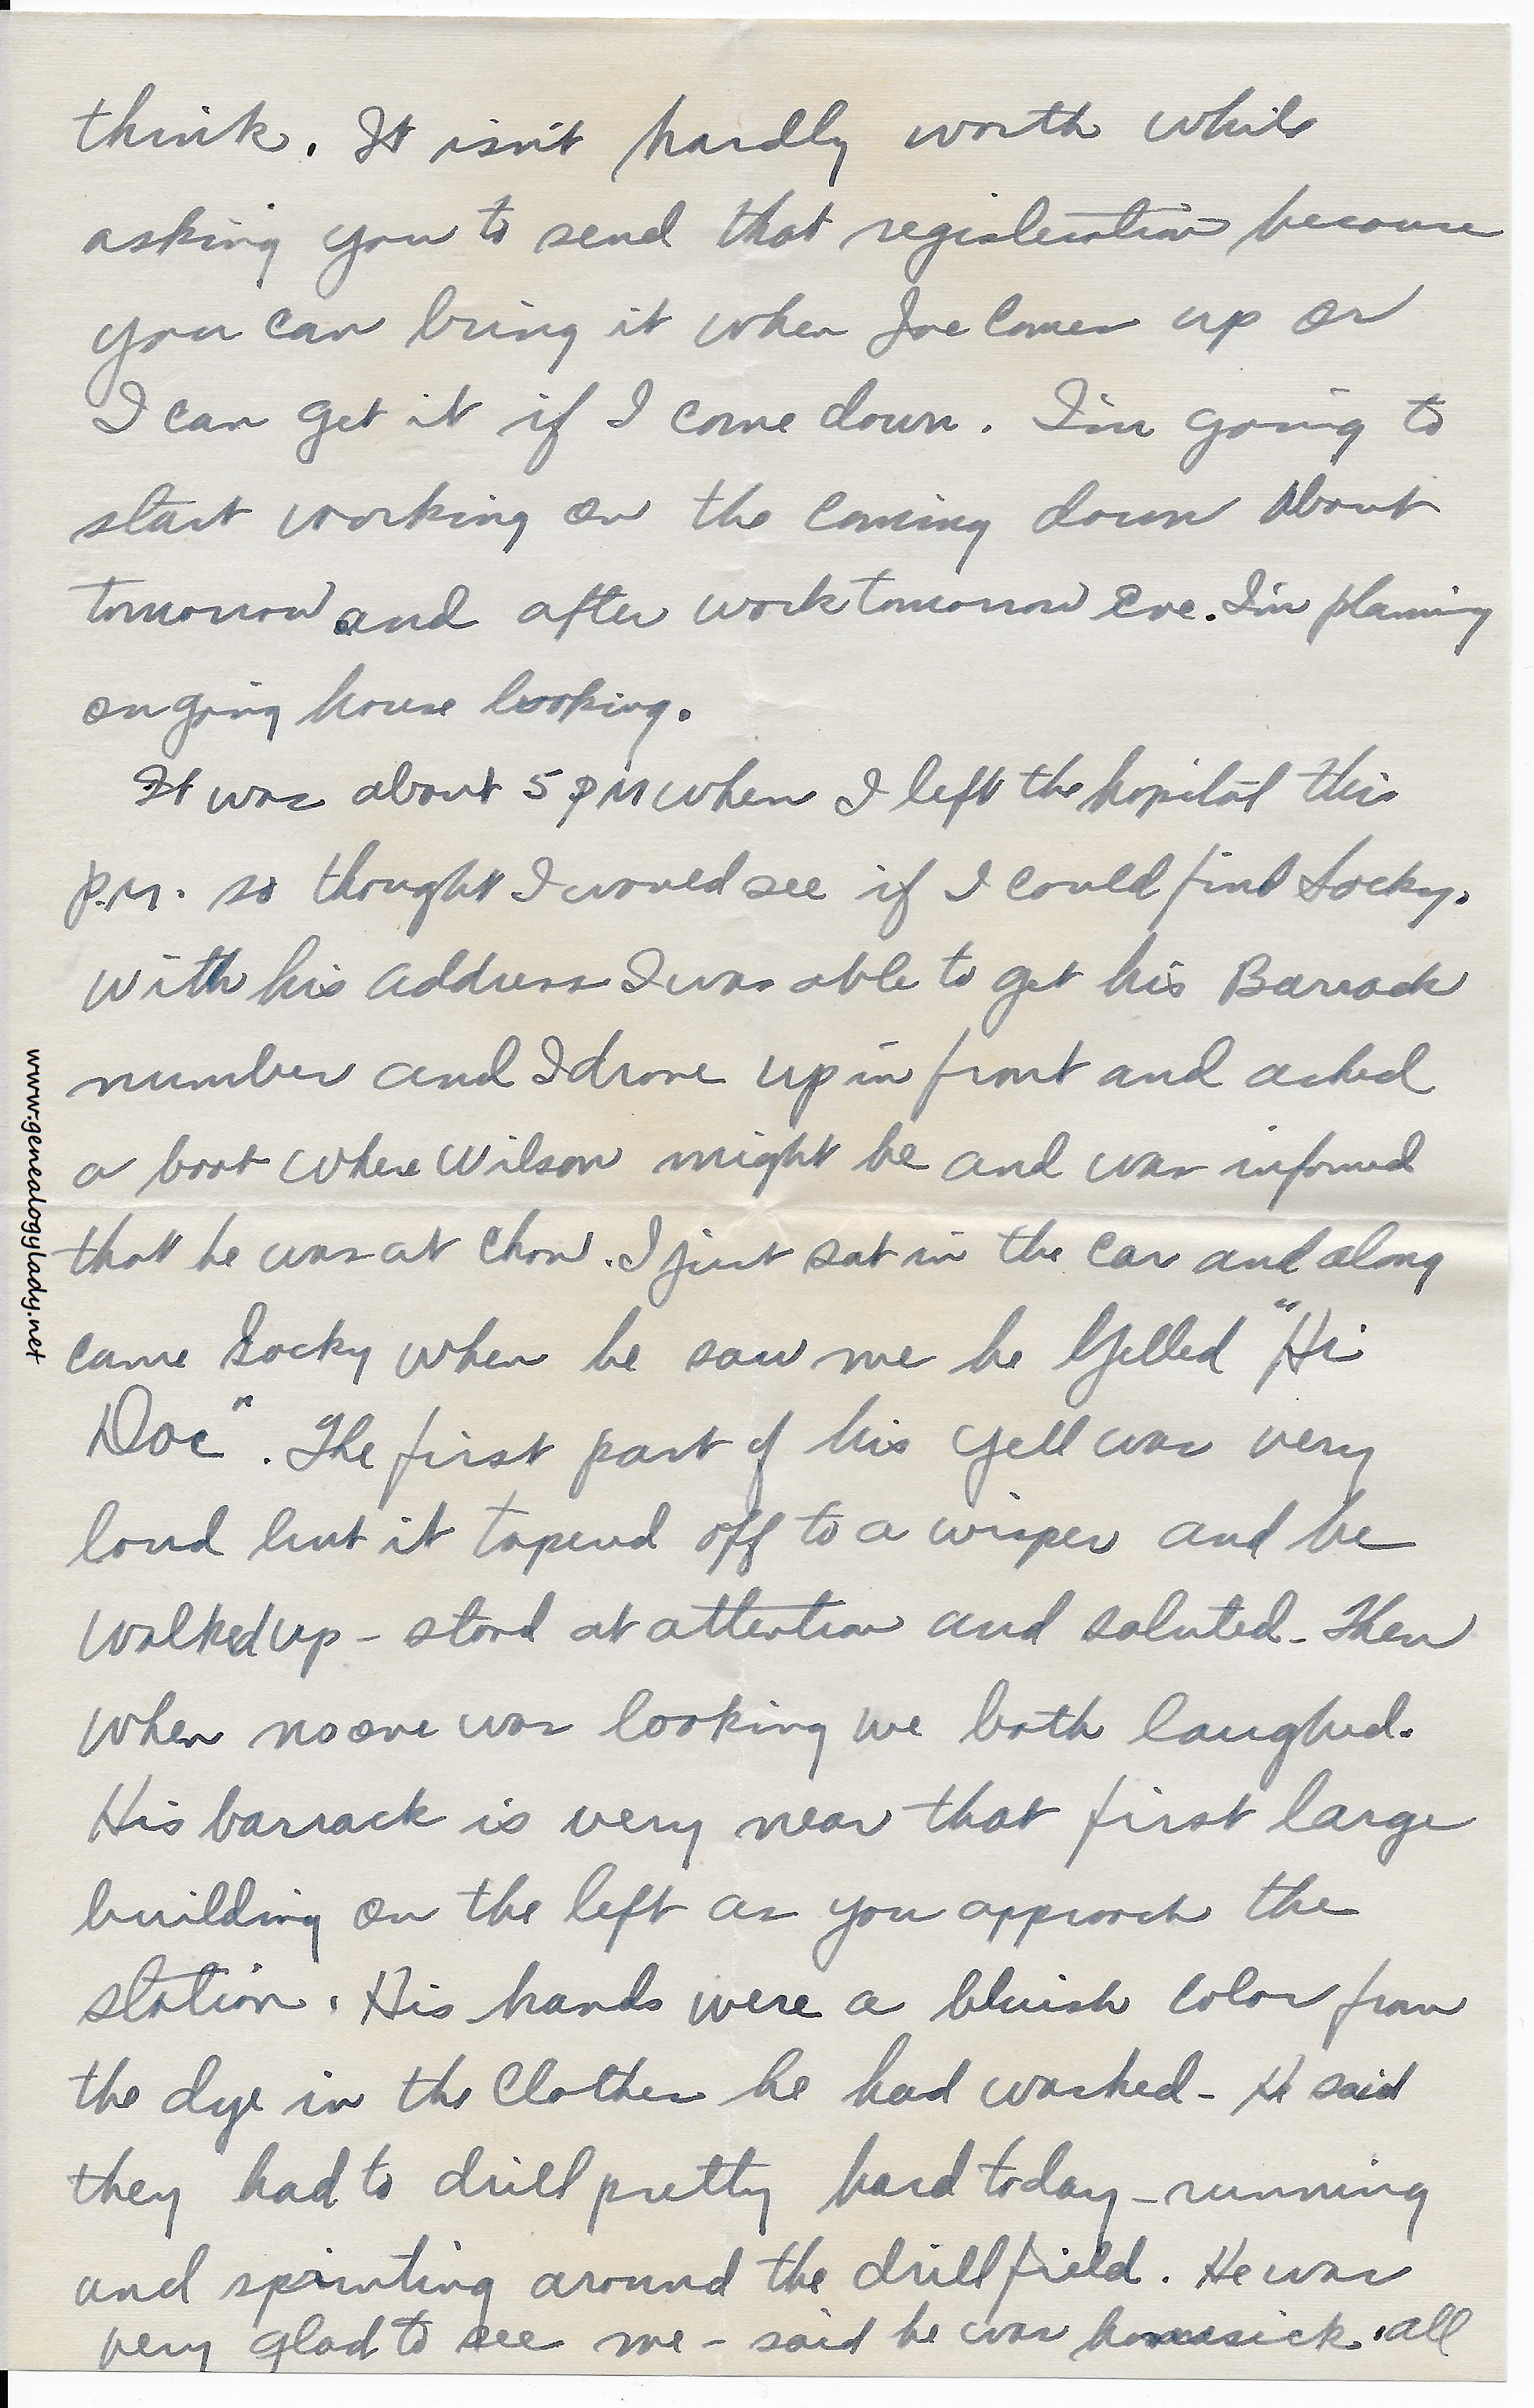 think. It isn't hardly worth while
asking you to send that registeration because
you can bring it when Joe comes up or
I can get it if I come down. I'm going to
start working on the coming down About
tomorrow and after work tomorrow eve. I'm planing
on going house looking.
It was about 5 PM when I left the hopital this
p.m. so thought I would see if I could find Socky.
With his address I was able to get his Barrack
number and I drove up in front and asked
a boot where Wilson might be and was informed
that he was at chow. I just sat in the car and along
came Socky when he saw me he Yelled "Hi
Doc". The first part of his yell was very
loud but it tapered off to a wisper and he
walked up - stood at attention and saluted - Then
when no one was looking we both laughed.
His barrack is very near that first large
building on the left as you approach the
station. His hands were a bluish color from
the dye in the clothes he had washed - He said
they had to drill pretty hard today - running
and sprinting around the drill field. He was
very glad to see me - said he was homesick. all
www.genealogylady.net